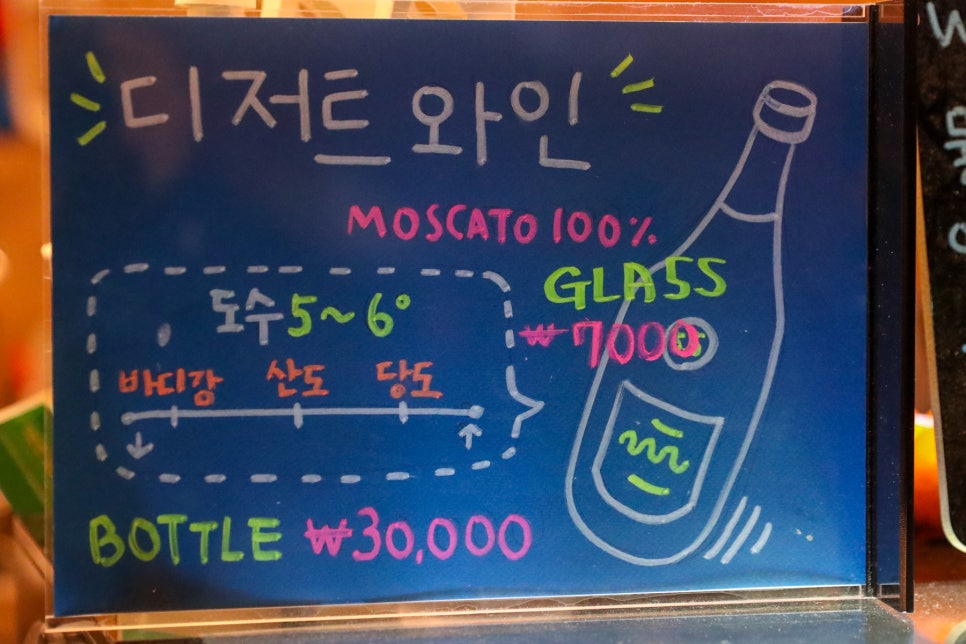 디저트 와인
MOSCATO 100%
GLASS
₩7000
도수 5~6°
바디감 산도 당도
BOTTLE ₩30,000